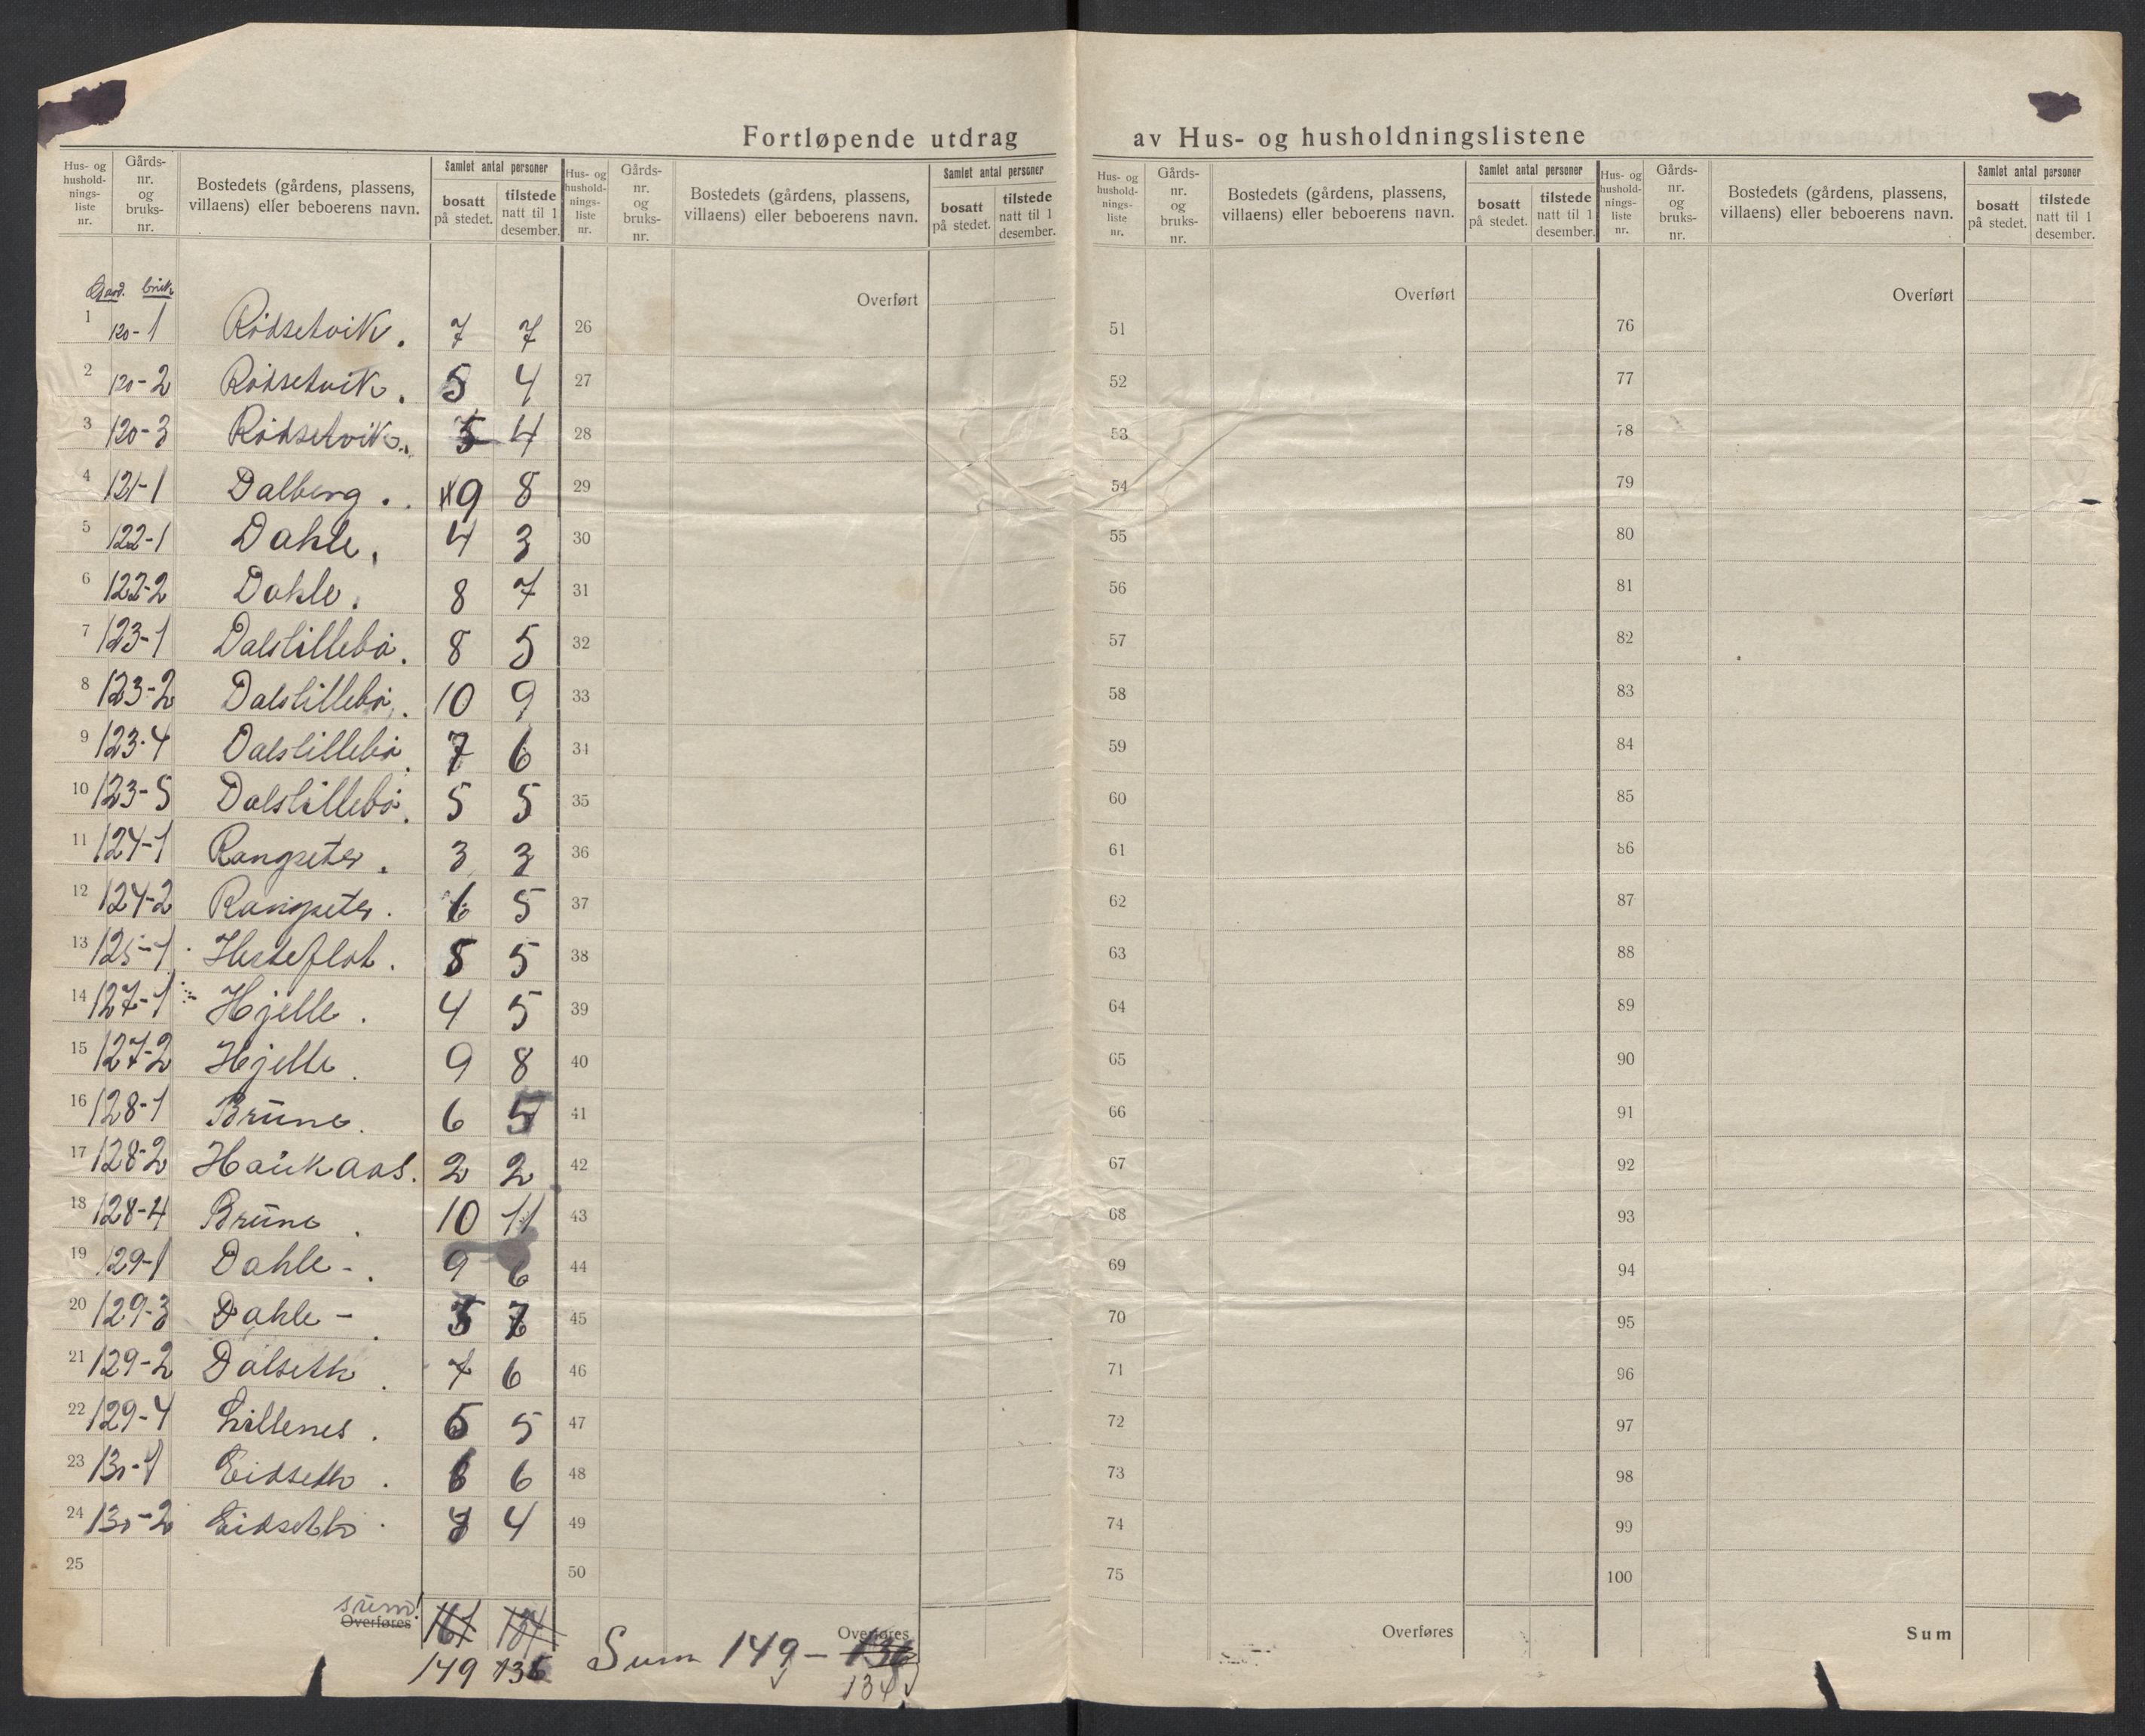 Fortløpende utdrag av Hus- og husholdningslistene
Hus- og husholdningsliste nr. Gårds-nr. og bruks-nr. Bostedets (gårdens, plassens, villaens) eller beboerens navn. Samlet antal personer bosatt på stedet. tilstede natt til 1 desember.
Hus- og husholdningsliste nr. Gårds-nr. og bruks-nr. Bostedets (gårdens, plassens, villaens) eller beboerens navn. Samlet antal personer bosatt på stedet. tilstede natt til 1 desember.
Hus- og husholdningsliste nr. Gårds-nr. og bruks-nr. Bostedets (gårdens, plassens, villaens) eller beboerens navn. Samlet antal personer bosatt på stedet. tilstede natt til 1 desember.
Hus- og husholdningsliste nr. Gårds-nr. og bruks-nr. Bostedets (gårdens, plassens, villaens) eller beboerens navn. Samlet antal personer bosatt på stedet. tilstede natt til 1 desember.
Gard. bruk Overført Overført Overført
1 120-1 Rödsetvik. 7 7 26 51 76
2 120-2 Rödsetvik. 5 4 27 52 77
3 120-3 Rödsetvik. 4 28 53 78
4 121-1 Dalberg. 9 8 29 54 79
5 122-1 Dahle. 4 3 30 55 80
6 122-2 Dahle. 8 7 31 56 81
7 123-1 Dalslillebö. 8 5 32 57 82
8 123-2 Dalslillebö. 10 9 33 58 83
9 123-4 Dalslillebö. 7 6 34 59 84
10 123-5 Dalslillebö. 5 5 35 60 85
11 124-1 Rangseter. 3 3 36 61 86
12 124-2 Rangseter. 6 5 37 62 87
13 125-1 Hesteflot. 5 38 63 88
14 127-1 Hjelle. 4 5 39 64 89
15 127-2 Hjelle. 9 8 40 65 90
16 128-1 Brune. 6 5 41 66 91
17 128-2 Haukaas. 2 2 42 67 92
18 128-4 Brune. 10 11 43 68 93
19 129-1 Dahle-. 9 6 44 69 94
20 129-3 Dahle-. 7 45 70 95
21 129-2 Dalseth. 7 6 46 71 96
22 129-4 Lillenes. 5 5 47 72 97
23 130-1 Eidseth. 6 6 48 73 98
24 130-2 Eidseth. 4 49 74 99
25 50 75 100
sum! Overføres 161 Overføres Overføres Sum
149 135 Sum 149 - 136
134